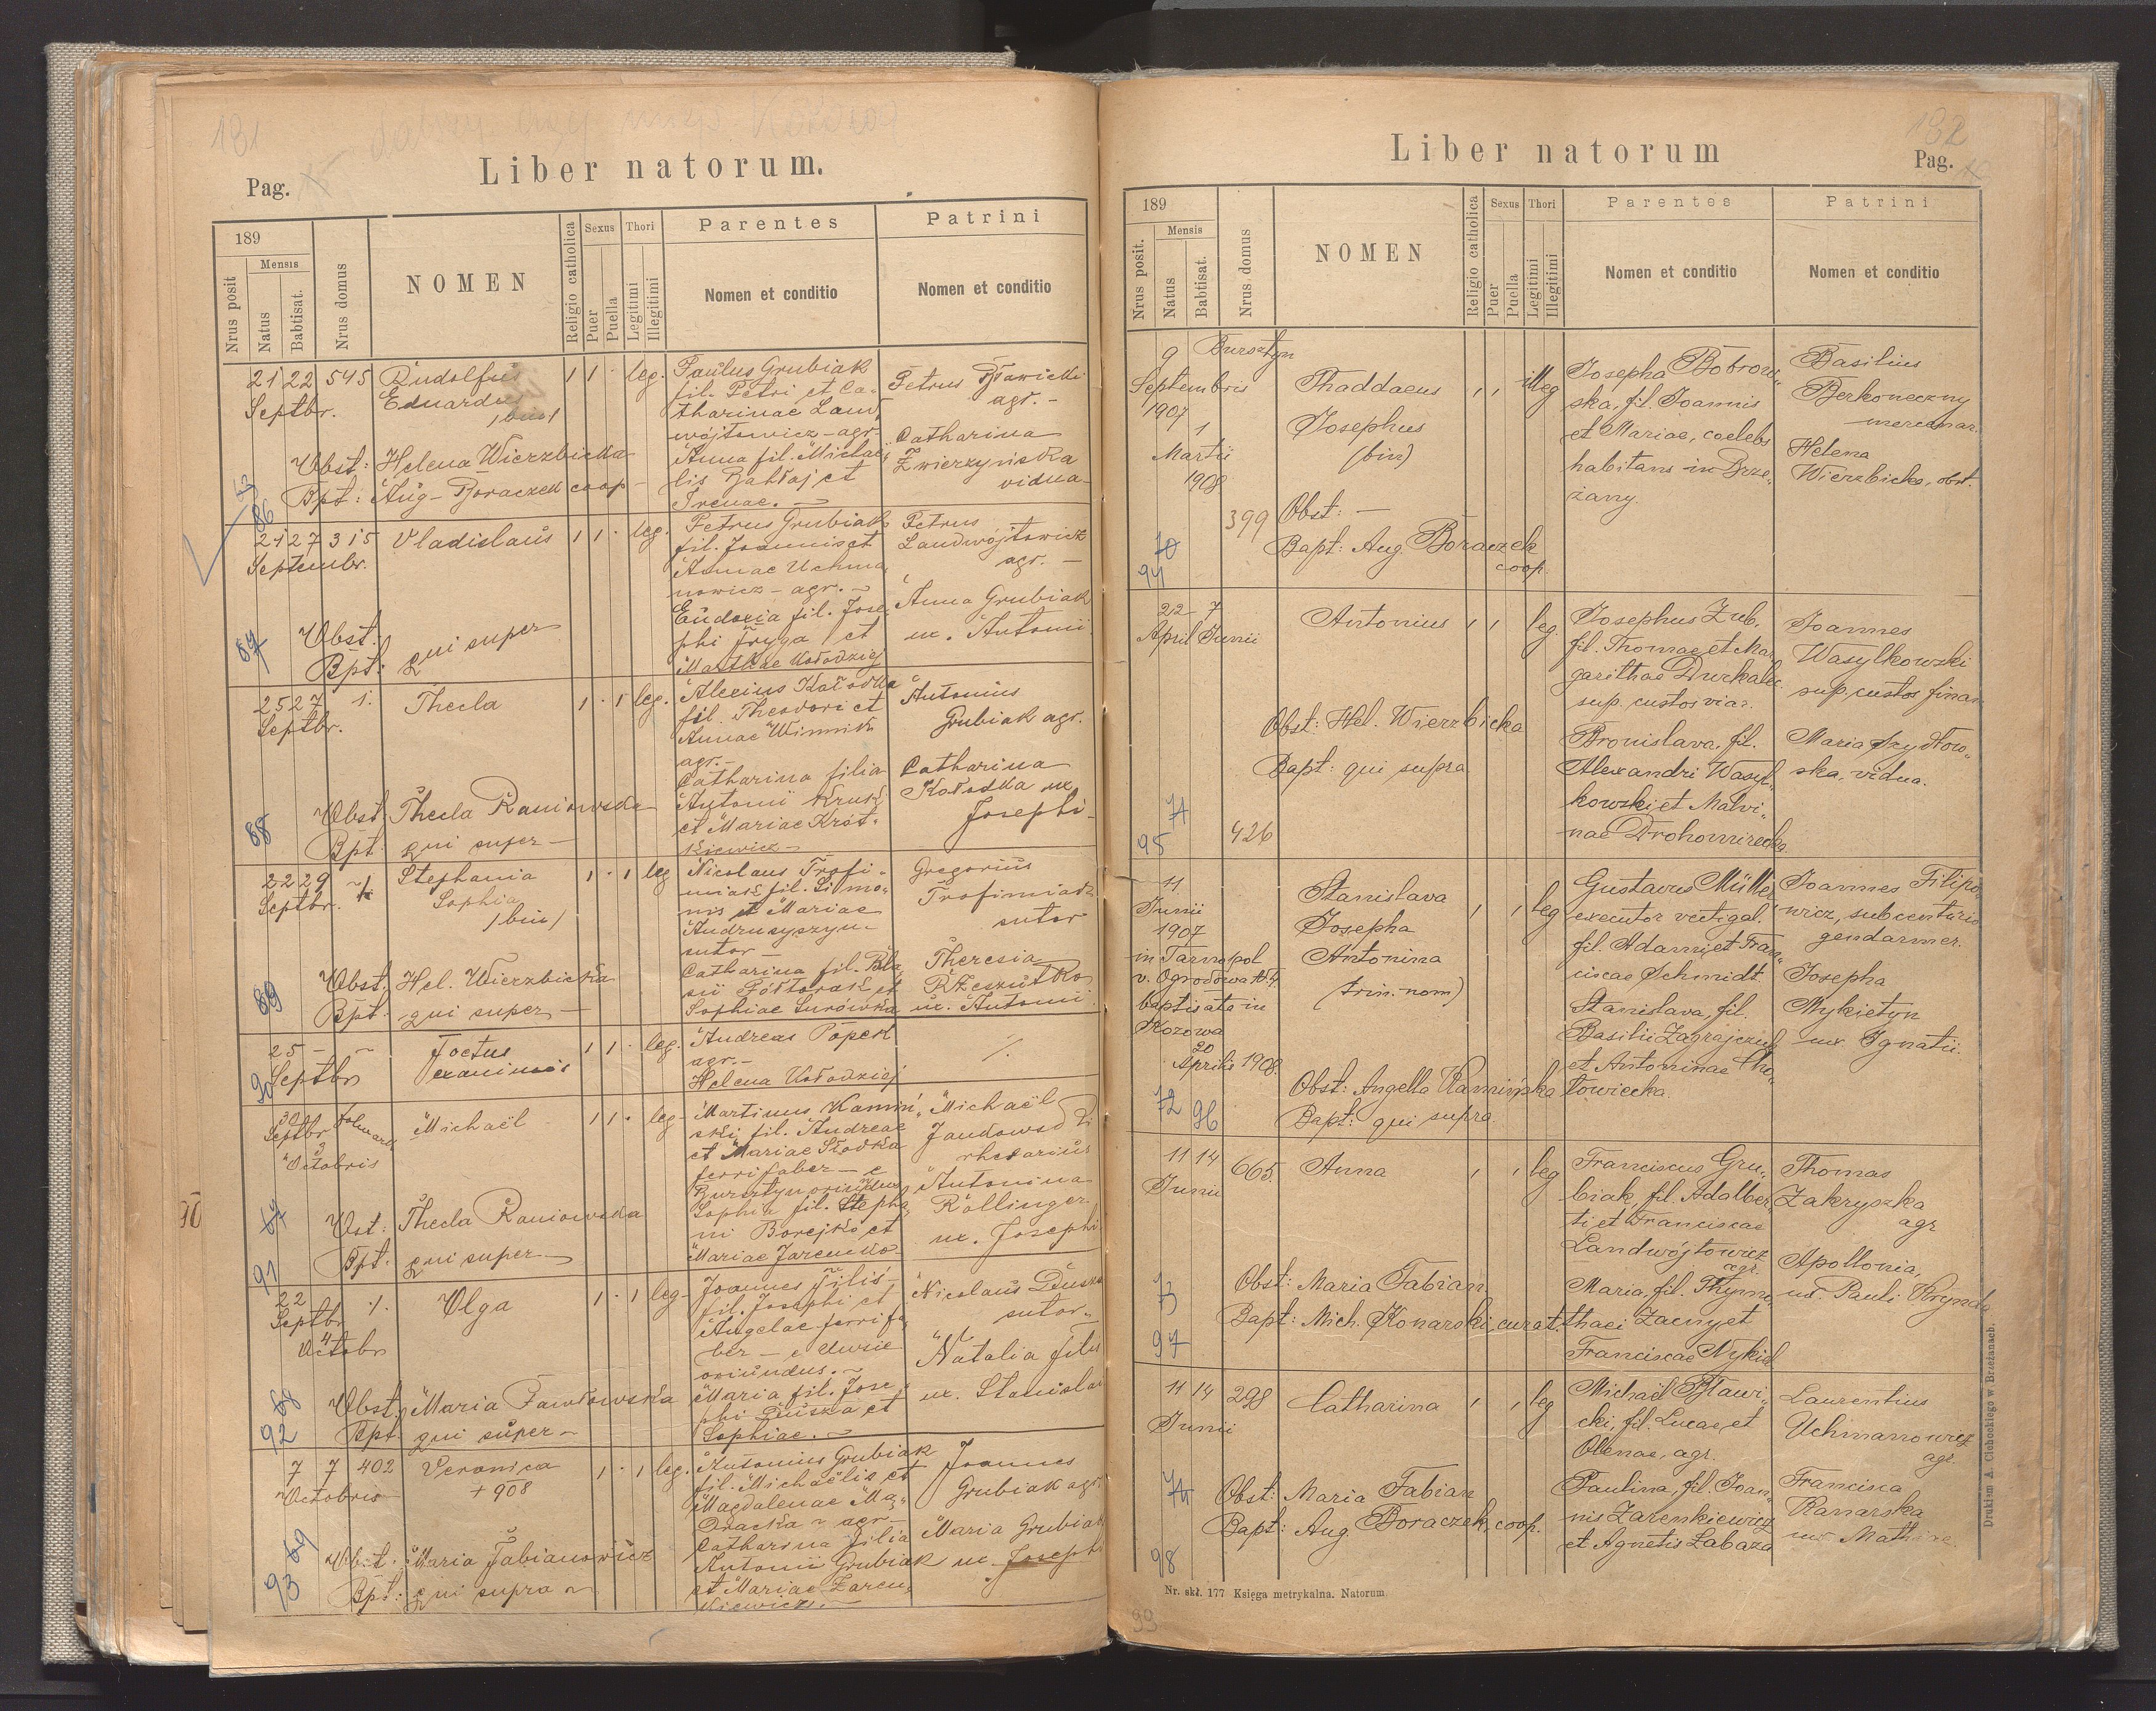 181
Liber natorum.
Pag.
189
Nrus posit
Mensis
Natus
Babtisat.
Nrus domus
NOMEN
Religio catholica
Sexus
Puer
Puella
Thori
Legitimi
Illegitimi
Parentes
Nomen et conditio
Patrini
Nomen et conditio
21 22 545 Rudolfus 1 1 · leg. Paulus Grubiak
Septbr. Eduardus fil. Petri et Ca-
/bin/ tharinae Land
wójtowicz - agr.
Petrus Bławicki
agr. -
Obst: Helena Wierzbicka Anna fil. Michae-
Bpt: Aug. Boraczek coop - lis Bahłaj et
Irenae. -
Catharina
Zwierzyńska
vidua -
86
21 27 315 Vladislaus 1 1 · leg. Petrus Grubiak
Septembr. fil. Joannis et
Annae Uchma
nowicz - agr. -
Petrus
Landwójtowicz
agr. -
Eudoxia fil. Jose
phi Fryga et
Marthae Kołodziej
Anna Grubiak
ux. Antonii
Obst:
Bpt: qui super
87
25 27 1. Thecla 1 · 1 leg. Alexius Kałodka
Septbr. fil. Theodori et
Annae Winnik
agr. -
Antonius
Grubiak agr.
Catharina filia
Antonii Kruk
et Mariae Krót-
kiewicz -
Catharina
Kołodka ux
Josephi -
Obst: Thecla Raniowska
Bpt: qui super -
88
22 29 Stephania 1 · 1 leg Nicolaus Trofi-
Septbr. Sophia miak fil. Simo-
/bin/ nis et Mariae
Andrusyszyn -
sutor -
Gregorius
Trofimiak
sutor
Catharina fil. Bla
sii Półtorak et
Sophiae Surówka
Theresia
Rzeszutko
ux. Antonii
Obst: Hel. Wierzbicka
Bpt: qui super -
89
25 - Foetus 1 1 · leg. Andreas Popek
Septbr exanimis agr. -
Helena Kołodziej
90
30 Folwark Michaël 1 1 · leg Martinus Kamiń-
Septbr ski fil. Andreae
3 et Mariae Słodka
Octobris ferrifaber - e
Bursztyn oriundus
Michaël
rhedarius
Sophia fil. Stepha
ni Borejko et
Mariae Jarenko -
Antonina
Röllinger
ux. Josephi
Obst: Thecla Raniowska
Bpt: qui super -
91
22 Olga 1 · 1 leg - Joannes Filiś
Septbr fil. Josephi et
4 Angelae ferrifa
Octobr ber - e
oriundus. -
Nicolaus Duszka
sutor -
Maria fil. Jose
phi Duszka et
Sophiae. -
Natalia Filiś
ux. Stanislai
Obst: Maria Pawłowska
Bpt: qui super -
92
7 7 402 Veronica 1 · 1 leg. Antonius Grubiak
Octobris + 908 fil. Michaëlis et
Magdalenae Ma-
agr -
Joannes
Grubiak agr.
Catharina filia
Antonii Grubiak
et Mariae Zaren-
kiewicz. -
Maria Grubiak
ux Josephi
Obst: Maria Fabianowicz
Bpt: qui supra
93
182
Liber natorum
Pag.
189
Nrus posit.
Mensis
Natus
Babtisat.
Nrus domus
NOMEN
Religio catholica
Sexus
Puer
Puella
Thori
Legitimi
Illegitimi
Parentes
Nomen et conditio
Patrini
Nomen et conditio
9 Bursztyn
Septembris Thaddaeus 1 1 illeg Josepha Bobrow-
1907 Josephus ska, fil. Joannis
1 (bin) et Mariae, coelebs
Martii habitans in Brze-
1908 żany.
Basilius
Berkoneczny
mercenar.
Helena
Wierzbicka, obst.
399 Obst: -
Bapt: Aug. Boraczek
coop.
70
94
22 7 Antonius 1 1 leg. Josephus Zub,
April Junii fil. Thomae et Mar
garithae Duckalec
sup. custos viar.
Joannes
Wasylkowski
sup. custos finan
Bronislava, fil.
Alexandri Wasyl-
kowski et Malvi-
nae Drohomirecka.
Maria Szydłow-
ska, vidua.
Obst: Hel. Wierzbicka
Bapt: qui supra
71
95 426
11 Stanislava 1 1 leg Gustavus Müller
Junii Josepha executor vectigal.
1907 Antonina fil. Adami et Fran-
in Tarnopol (trin. nom) ciscae Schmidt.
v. Ogrodowa
baptisata in
Kozowa
20
Aprilis 1908.
Joannes Filipo-
wicz, subcenturio
gendarmer.
Stanislava, fil.
Basilii Zagrajczuk
et Antoninae Cho-
łowiecka.
Josepha
Mykietyn
ux Ignatii.
Obst: Angella Kamińska
Bapt: qui supra
72 96
11 14 665. Anna 1 1 leg Franciscus Gru-
Junii biak, fil. Adalber-
ti et Franciscae
Landwójtowicz
agr.
Thomas
Zakryszka
agr
Maria, fil. Thymo-
thaei Zacny, et
Franciscae Nykiel
Apollonia,
ux. Pauli Krynda
Obst: Maria Fabian
Bapt: Mich. Konarski, curat.
73
97
11 14 298 Catharina 1 1 leg Michaël Bławi-
Junii cki, fil. Lucae, et
Olenae, agr.
Laurentius
Uchmanowicz
agr.
Paulina, fil. Joan-
nis Zarenkiewicz
et Agnetis Łabaza
Francisca
Kanarska
ux. Mathiae
Obst: Maria Fabian
Bapt: Aug. Boraczek, coop.
74
98
Nr. skł. 177 Księga metrykalna. Natorum
Drukiem A. Cichockiego w Brzeżanach.
99